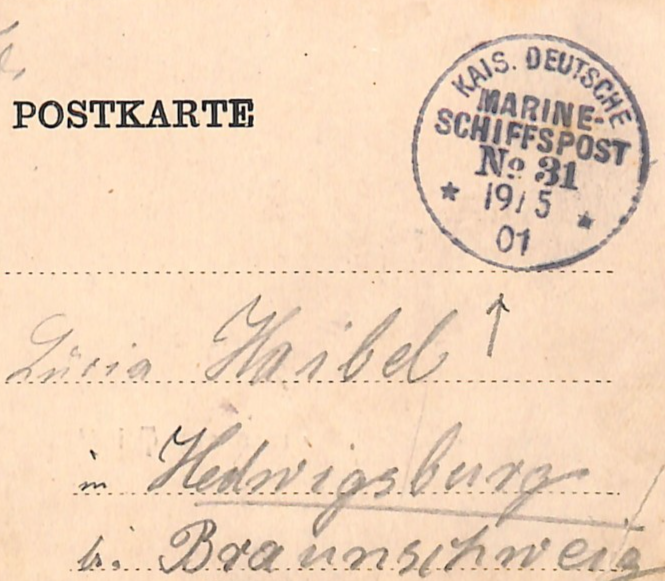 POSTKARTE
KAIS. DEUTSCHE
MARINE-
SCHIFFSPOST
No 31
* 19/5 *
01
Lucia Haibel
in Hedwigsburg
b. Braunschweig